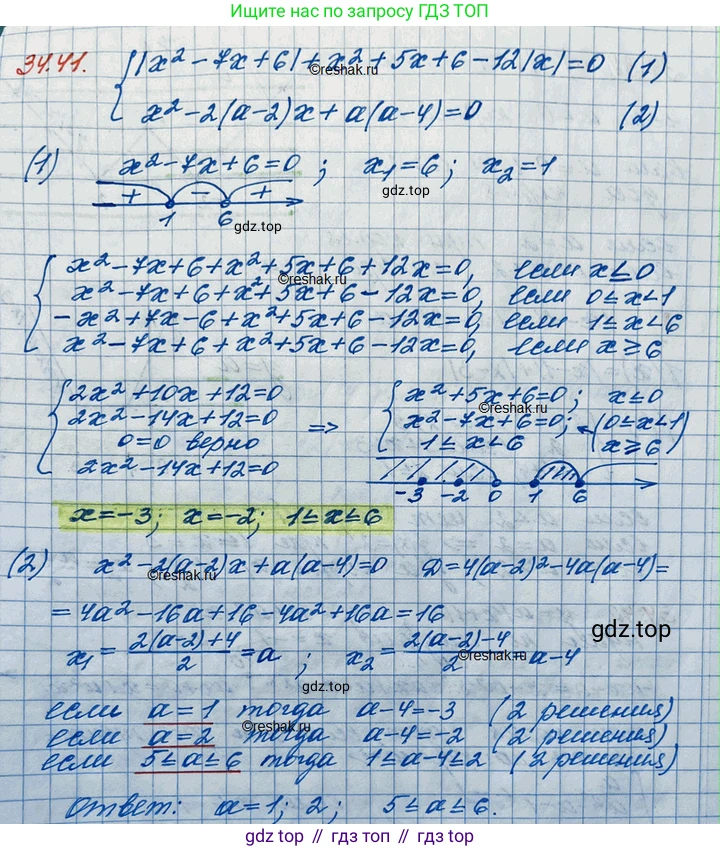 Ищите нас по запросу ГДЗ ТОП
34.41. { |x² - 7x + 6| + x² + 5x + 6 - 12|x| = 0 (1)
©reshak.ru
x² - 2(a-2)x + a(a-4) = 0 (2)
(1) x² - 7x + 6 = 0 ; x₁ = 6 ; x₂ = 1
+ - +
1 6
gdz.top
{ x² - 7x + 6 + x² + 5x + 6 + 12x = 0, если x ≤ 0
©reshak.ru
x² - 7x + 6 + x² + 5x + 6 - 12x = 0, если 0 ≤ x < 1
-x² + 7x - 6 + x² + 5x + 6 - 12x = 0, если 1 ≤ x < 6
x² - 7x + 6 + x² + 5x + 6 - 12x = 0, если x ≥ 6
{ 2x² + 10x + 12 = 0
2x² - 14x + 12 = 0
0 = 0 верно
2x² - 14x + 12 = 0
=> { x² + 5x + 6 = 0 ; x ≤ 0
©reshak.ru
x² - 7x + 6 = 0 ; ← (0 ≤ x < 1
x ≥ 6)
1 ≤ x < 6
-3 -2 0 1 6
x = -3 ; x = -2 ; 1 ≤ x ≤ 6
(2) x² - 2(a-2)x + a(a-4) = 0 Д = 4(a-2)² - 4a(a-4) =
©reshak.ru
= 4a² - 16a + 16 - 4a² + 16a = 16
gdz.top
x₁ = (2(a-2)+4)/2 = a ; x₂ = (2(a-2)-4)/2 = a-4
©reshak.ru
gdz.top
если a = 1 тогда a-4 = -3 (2 решения)
©reshak.ru
если a = 2 тогда a-4 = -2 (2 решения)
если 5 ≤ a ≤ 6 тогда 1 ≤ a-4 ≤ 2 (2 решения)
Ответ: a = 1 ; 2 ; 5 ≤ a ≤ 6.
gdz.top // гдз.топ // gdz.top